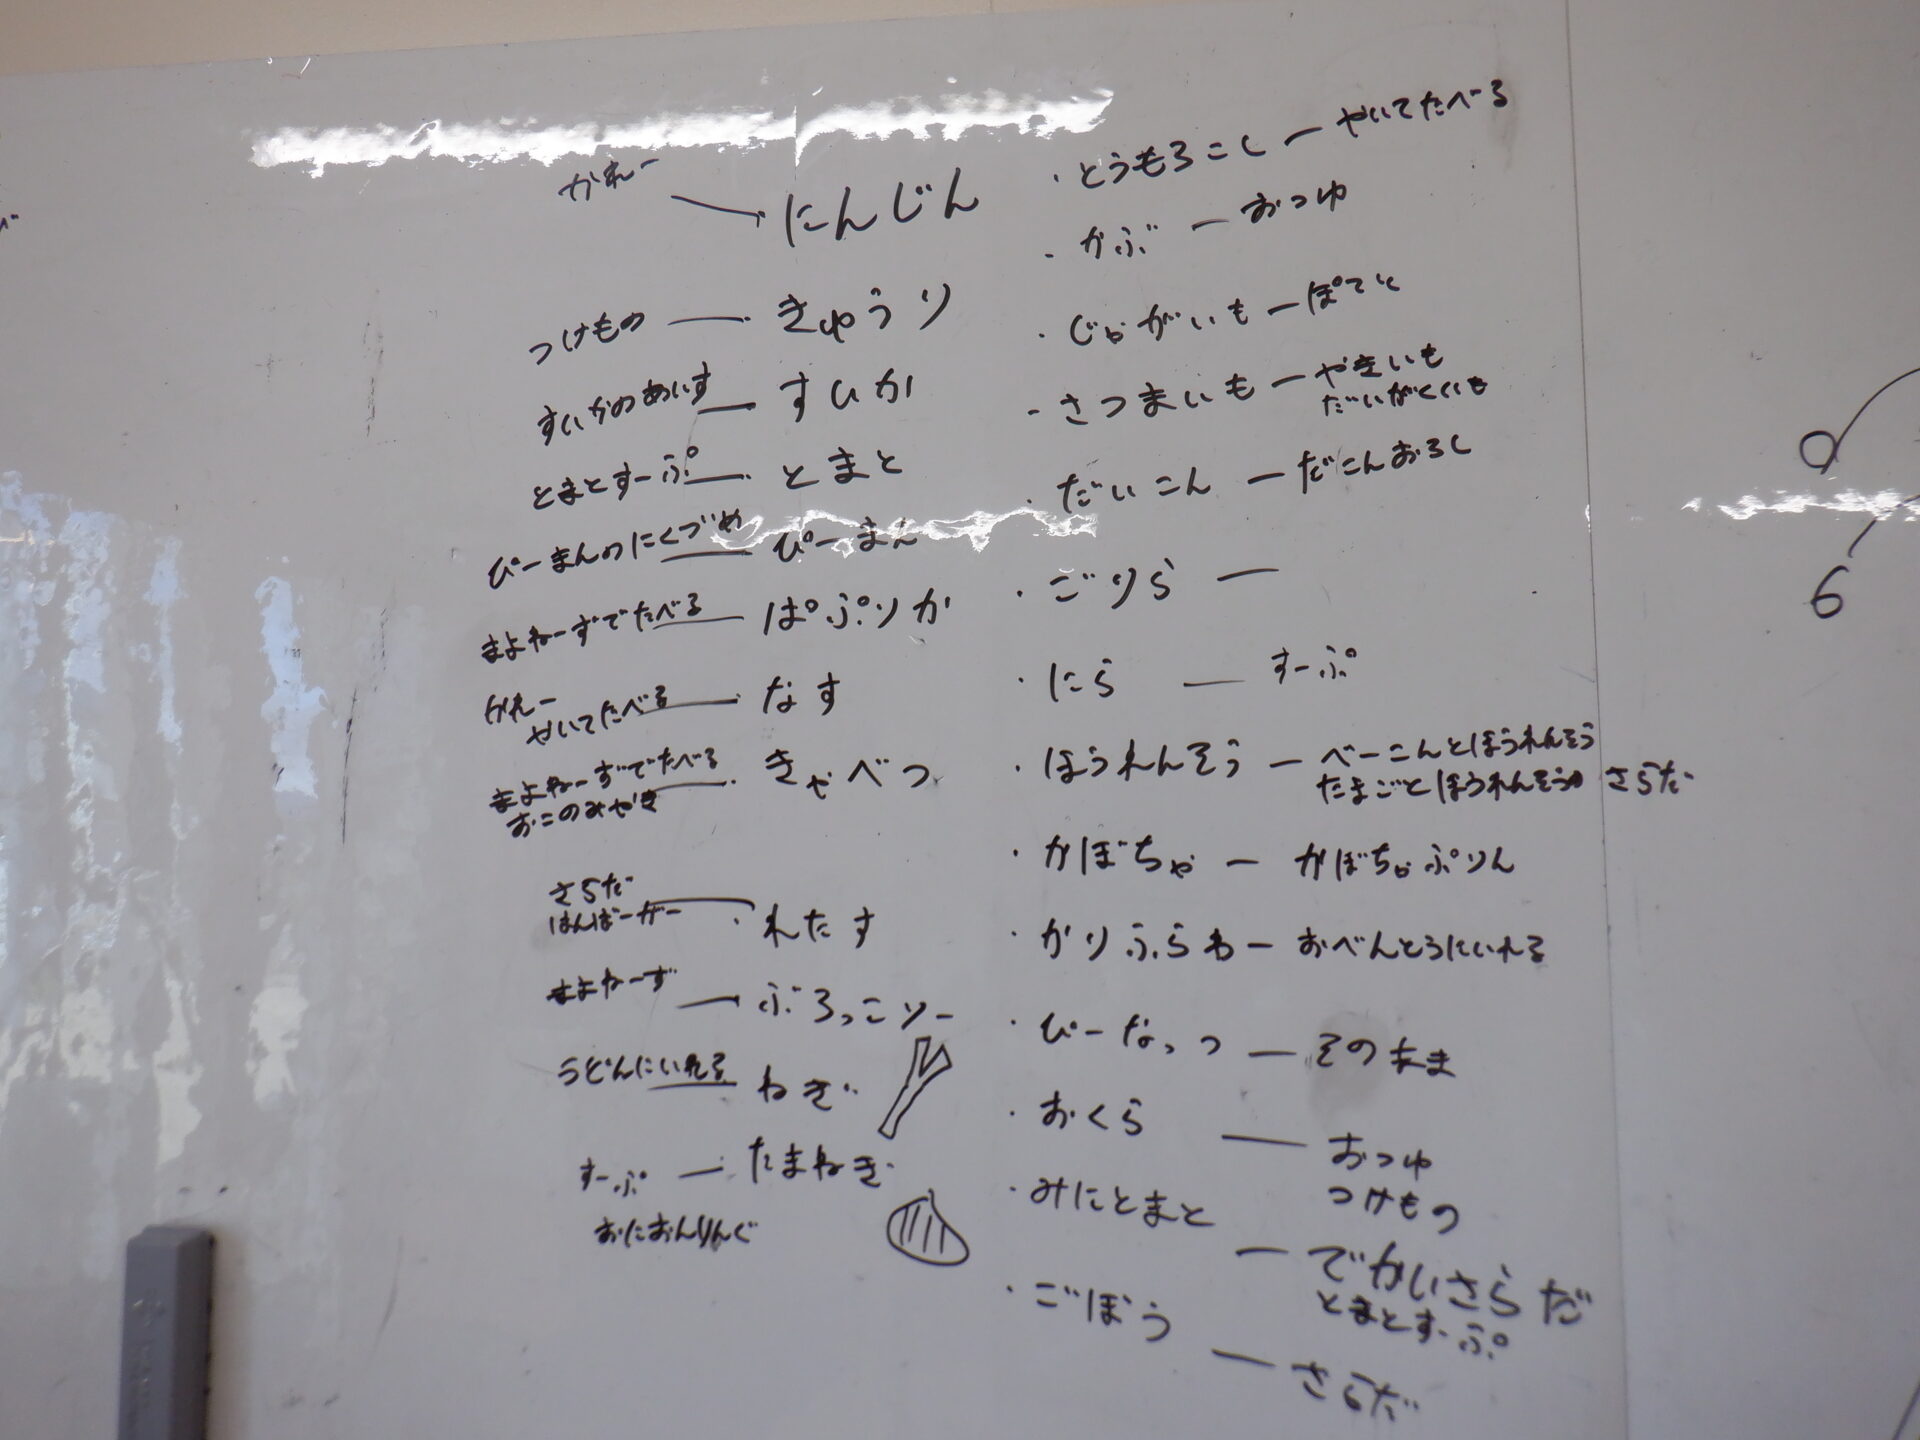 かれー ー にんじん
つけもの ー きゅうり
すいかのあいす ー すいか
とまとすーぷ ー とまと
ぴーまんのにくづめ ー ぴーまん
まよねーずでたべる ー ぱぷりか
かれー
やいてたべる ー なす
まよねーずでたべる ー きゃべつ
おこのみやき
さらだ
はんばーがー ・れたす
まよねーず ー ぶろっこりー
うどんにいれる ー ねぎ
すーぷ ー たまねぎ
おにおんりんぐ
・とうもろこし ー やいてたべる
・かぶ ー おつゆ
・じゃがいも ー ぽてと
・さつまいも ー やきいも
だいがくいも
・だいこん ー だこんおろし
・ごりら ー
・にら ー すーぷ
・ほうれんそう ー べーこんとほうれんそう
たまごとほうれんそうの さらだ
・かぼちゃ ー かぼちゃぷりん
・かりふらわー おべんとうにいれる
・ぴーなっつ ー そのまま
・おくら ー おつゆ
つけもの
・みにとまと ー でかいさらだ
とまとすーぷ
・ごぼう ー さらだ
6